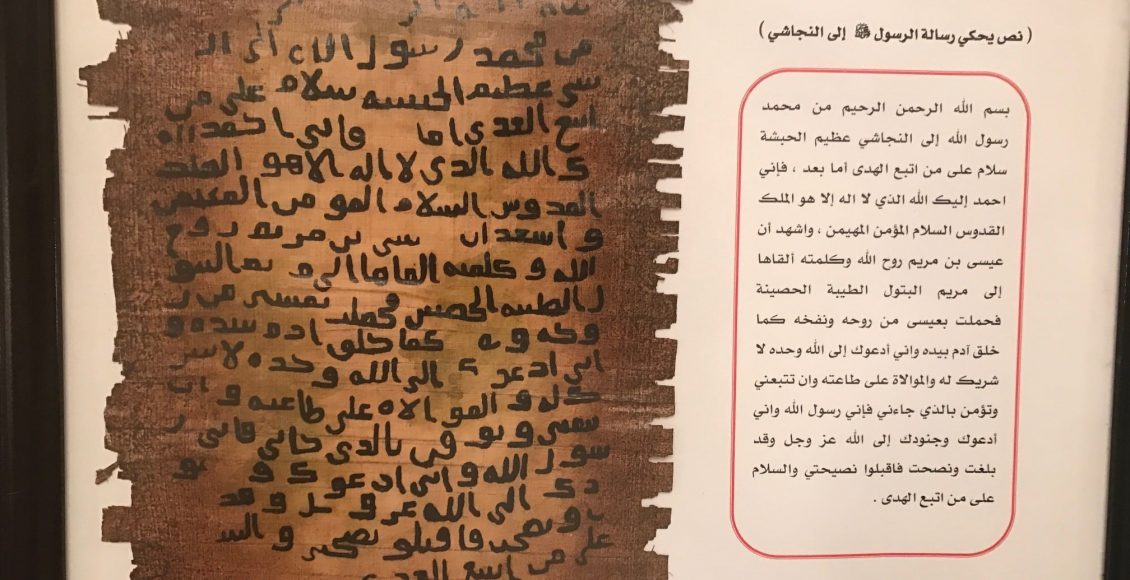 ( نص يحكي رسالة الرسول ﷺ إلى النجاشي )
بسم الله الرحمن الرحيم من محمد
رسول الله إلى النجاشي عظيم الحبشة
سلام على من اتبع الهدى أما بعد ، فإني
احمد إليك الله الذي لا اله إلا هو الملك
القدوس السلام المؤمن المهيمن ، واشهد أن
عيسى بن مريم روح الله وكلمته ألقاها
إلى مريم البتول الطيبة الحصينة
فحملت بعيسى من روحه ونفخه كما
خلق آدم بيده واني أدعوك إلى الله وحده لا
شريك له والموالاة على طاعته وان تتبعني
وتؤمن بالذي جاءني فإني رسول الله واني
أدعوك وجنودك إلى الله عز وجل وقد
بلغت ونصحت فاقبلوا نصيحتي والسلام
على من اتبع الهدى .
من محمد رسول الله الى ال
سى عظيم الحبسه سلام على من
اتبع الهدى اما فانى احمد ال
ك الله الذى لا اله الا هو الملك
القدوس السلام المومن المهيمن
و اسهد ان سى بن مريم روح
الله و كلمته القاها الى يم البتو
ل الطيبه من ر
كما خلق ادم بيده و
انى الى الله و حده لا سر
له و الموالاه على طاعته و ان
بالذى جانى فانى ر
سول الله و انى ادعوك و
دك الى الله عز و و قد
فاقبلو و السلا
على من اتبع الهدى